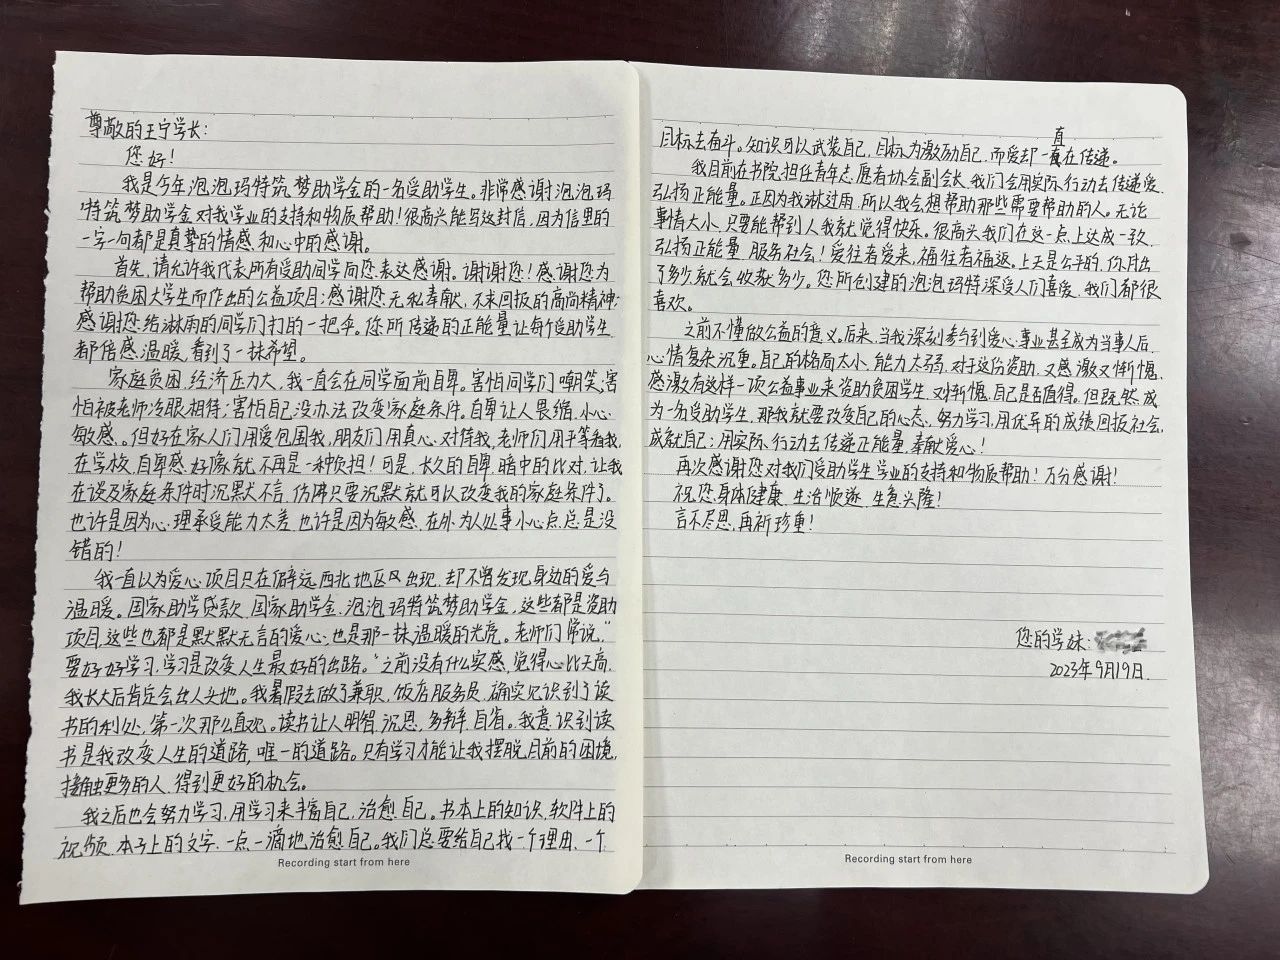 尊敬的王宁学长:
您好!
我是今年泡泡玛特筑梦助学金的一名受助学生。非常感谢泡泡玛
特筑梦助学金对我学业的支持和物质帮助!很高兴能写这封信,因为信里的
一字一句都是真挚的情感和心中的感谢。
首先,请允许我代表所有受助同学向您表达感谢。谢谢您!感谢您为
帮助贫困大学生而作出的公益项目;感谢您无私奉献,不求回报的高尚精神;
感谢您给淋雨的同学们打的一把伞。您所传递的正能量让每个受助学生
都倍感温暖,看到了一抹希望。
家庭贫困,经济压力大,我一直会在同学面前自卑。害怕同学们嘲笑;害
怕被老师冷眼相待;害怕自己没办法改变家庭条件。自卑让人畏缩、小心、
敏感。但好在家人们用爱包围我,朋友们用真心对待我,老师们用平等看我,
在学校,自卑感好像就不再是一种负担!可是,长久的自卑,暗中的比对,让我
在谈及家庭条件时沉默不言,仿佛只要沉默就可以改变我的家庭条件了。
也许是因为心理承受能力太差,也许是因为敏感,在外为人处事小心点总是没
错的!
我一直以为爱心项目只在僻远西北地区出现,却不曾发现身边的爱与
温暖。国家助学贷款,国家助学金,泡泡玛特筑梦助学金,这些都是资助
项目,这些也都是默默无言的爱心,也是那一抹温暖的光亮。老师们常说,“
要好好学习,学习是改变人生最好的出路。”之前没有什么实感,觉得心比天高,
我长大后肯定会出人头地。我暑假去做了兼职,饭店服务员,确实见识到了读
书的利处,第一次那么直观。读书让人明智,沉思,多辩,自省。我意识到读
书是我改变人生的道路,唯一的道路。只有学习才能让我摆脱目前的困境,
接触更多的人,得到更好的机会。
我之后也会努力学习,用学习来丰富自己,治愈自己。书本上的知识,软件上的
视频,本子上的文字,一点一滴地治愈自己。我们总要给自己找一个理由,一个
Recording start from here
直
目标去奋斗。知识可以武装自己,目标为激励自己,而爱却一直在传递。
我目前在书院担任青年志愿者协会副会长,我们会用实际行动去传递爱,
弘扬正能量。正因为我淋过雨,所以我会想帮助那些需要帮助的人。无论
事情大小,只要能帮到人我就觉得快乐。很高兴我们在这一点上达成一致,
弘扬正能量,服务社会!爱往者爱来,福往者福返。上天是公平的,你付出
了多少,就会收获多少。您所创建的泡泡玛特深受人们喜爱,我们都很
喜欢。
之前不懂做公益的意义。后来,当我深刻参与到爱心事业甚至成为当事人后,
心情复杂沉重。自己的格局太小,能力太弱,对于这份资助,又感激又惭愧,
感激有这样一项公益事业来资助贫困学生,又惭愧自己是否值得。但既然成
为一名受助学生,那我就要改变自己的心态,努力学习,用优异的成绩回报社会,
成就自己;用实际行动去传递正能量,奉献爱心!
再次感谢您对我们受助学生学业的支持和物质帮助!万分感谢!
祝您身体健康,生活顺遂,生意兴隆!
言不尽思,再祈珍重!
您的学妹:
2023年9月19日.
Recording start from here